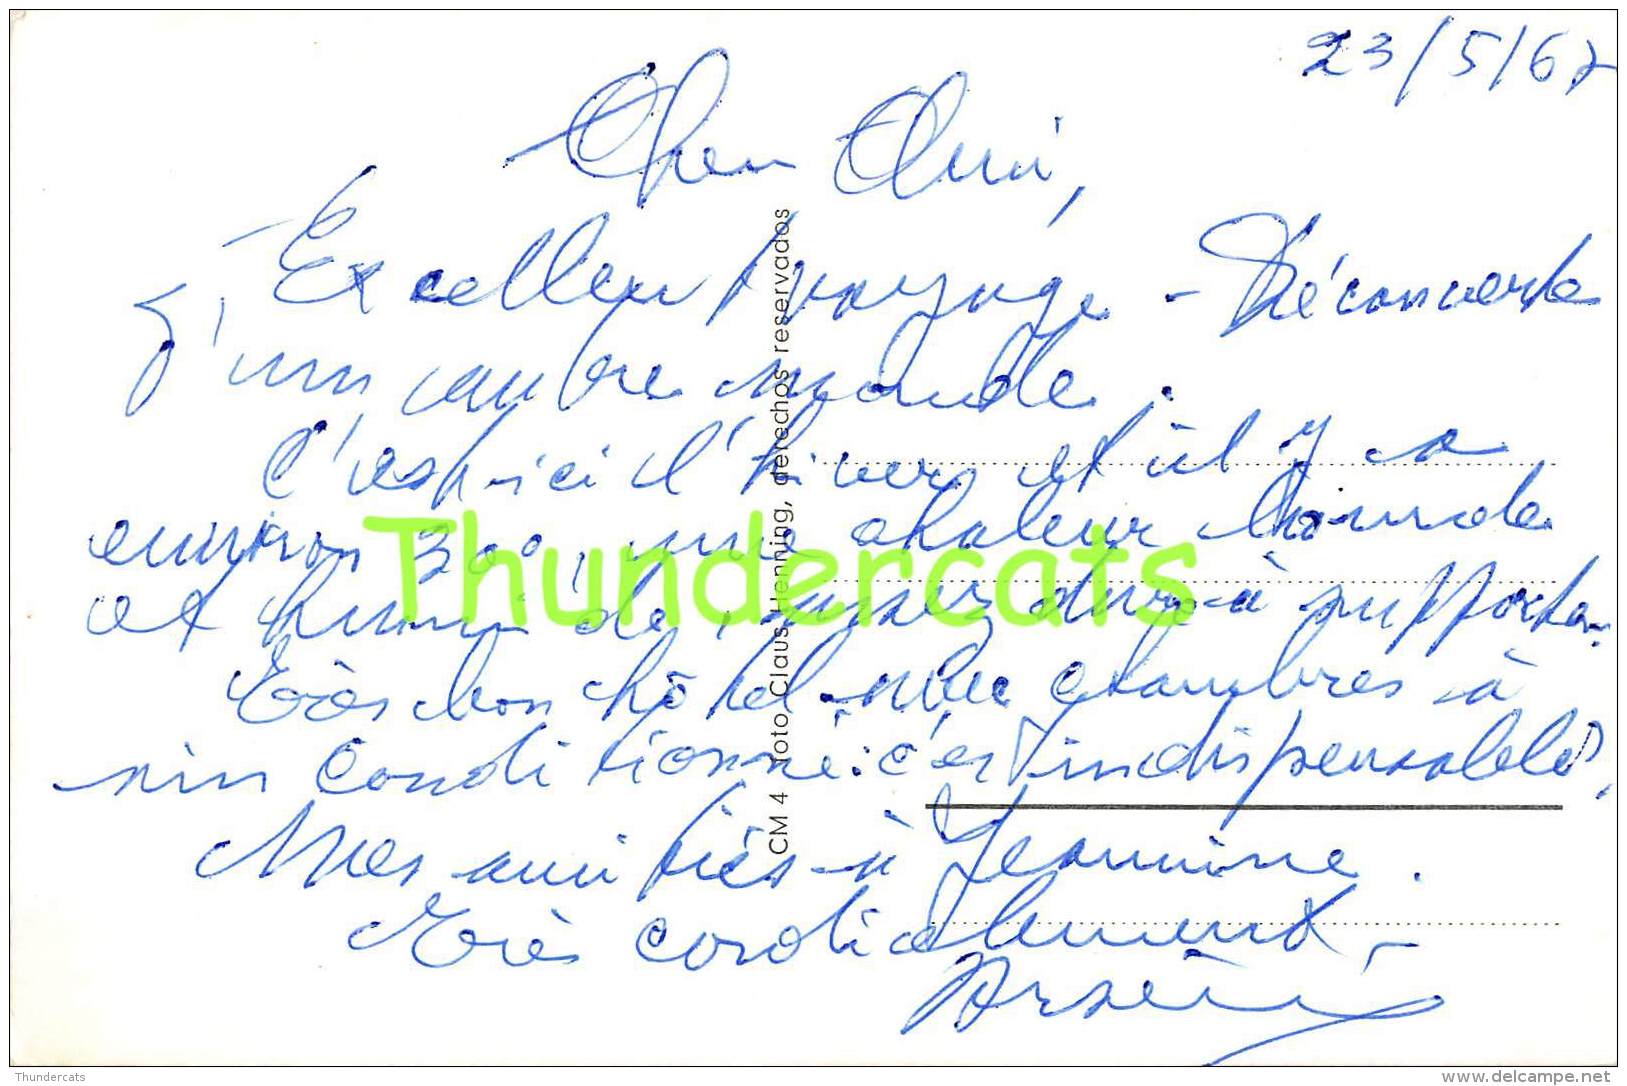 23/5/67
Cher Ami,
Excellent voyage - Découverte
d'un autre monde.
C'est ici l'hiver et il y a
environ 30°, une chaleur lourde
et humide, assez dure à supporter.
Très bon hôtel avec chambres à
air conditionné: c'est indispensable,
Mes amitiés à Jeannine.
Très cordialement,
Arsène
CM 4 Foto Claus Henning, derechos reservados
Thundercats
Thundercats
www.delcampe.net